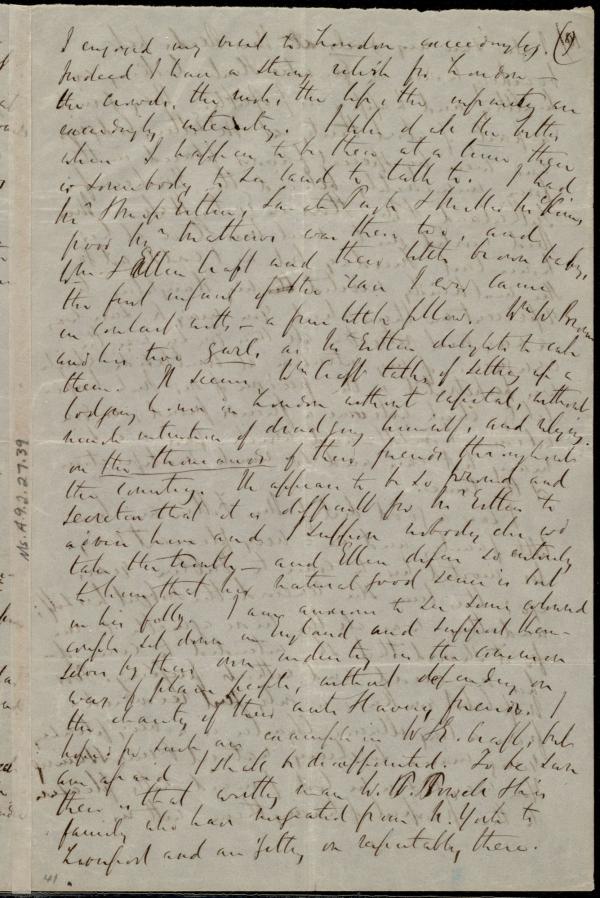 (9)
I enjoyed my visit to London exceedingly.
Indeed I have a strong relish for London —
the crowds, the noise, the life, the infinity are
exceedingly interesting. I like it all the better
when I happen to be there at a time there
is somebody to see and to talk to. I had
Mrs & Miss Estlin, Sarah Pugh & Miller McKim,
poor Mrs Mathews was there too, and
Wm & Ellen Craft and their little brown baby,
the first infant of the race I ever came
in contact with — a fine little fellow. Wm W. Brown
and his two gurls, as Mr Estlin delights to call
them. It seems Wm Craft talks of setting up a
lodging house in London without capital, without
much intention of drudging himself, and relying
on the thousands of their friends throughout
the country. He appears to be so proud and
secretive that it is difficult for Mr Estlin to
advise him and I suppose nobody else wd
take the trouble — and Ellen defers so entirely
to him that her natural good sense is lost
in his folly. I am anxious to see some coloured
couple set down in England and support them-
selves by their own industry in the common
way of plain people, without depending on
the charity of their anti slavery friends. I
hoped for such an example in W & E. Craft, but
am afraid I shall be disappointed. To be sure
there is that worthy man W. P. Powell & his
family who have migrated from N. York to
Liverpool and are getting on respectably there.
Ms. A.9.2.27.39
41